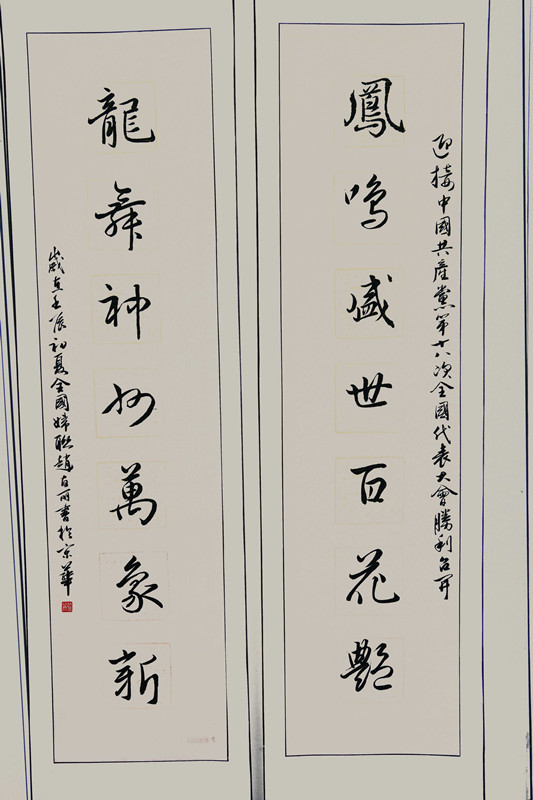 迎接中國共產黨第十八次全國代表大會勝利召開
鳳鳴盛世百花艷
龍舞神州萬象新
歲在壬辰初夏全國婦聯趙自丽書於京華